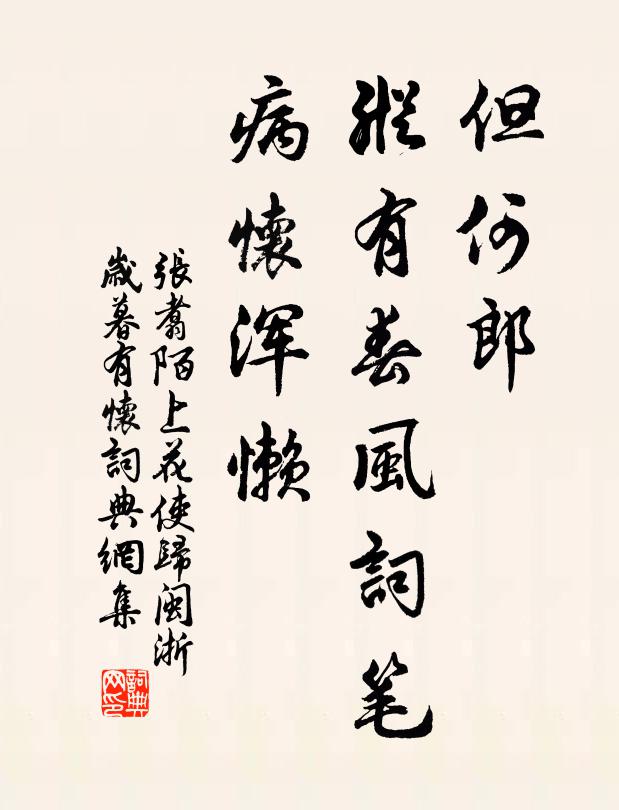 但何郎
縱有春風詞笔
病懷浑懒
張翥陌上花使歸闽浙
歲暮有懷詞典網集
詞典网印